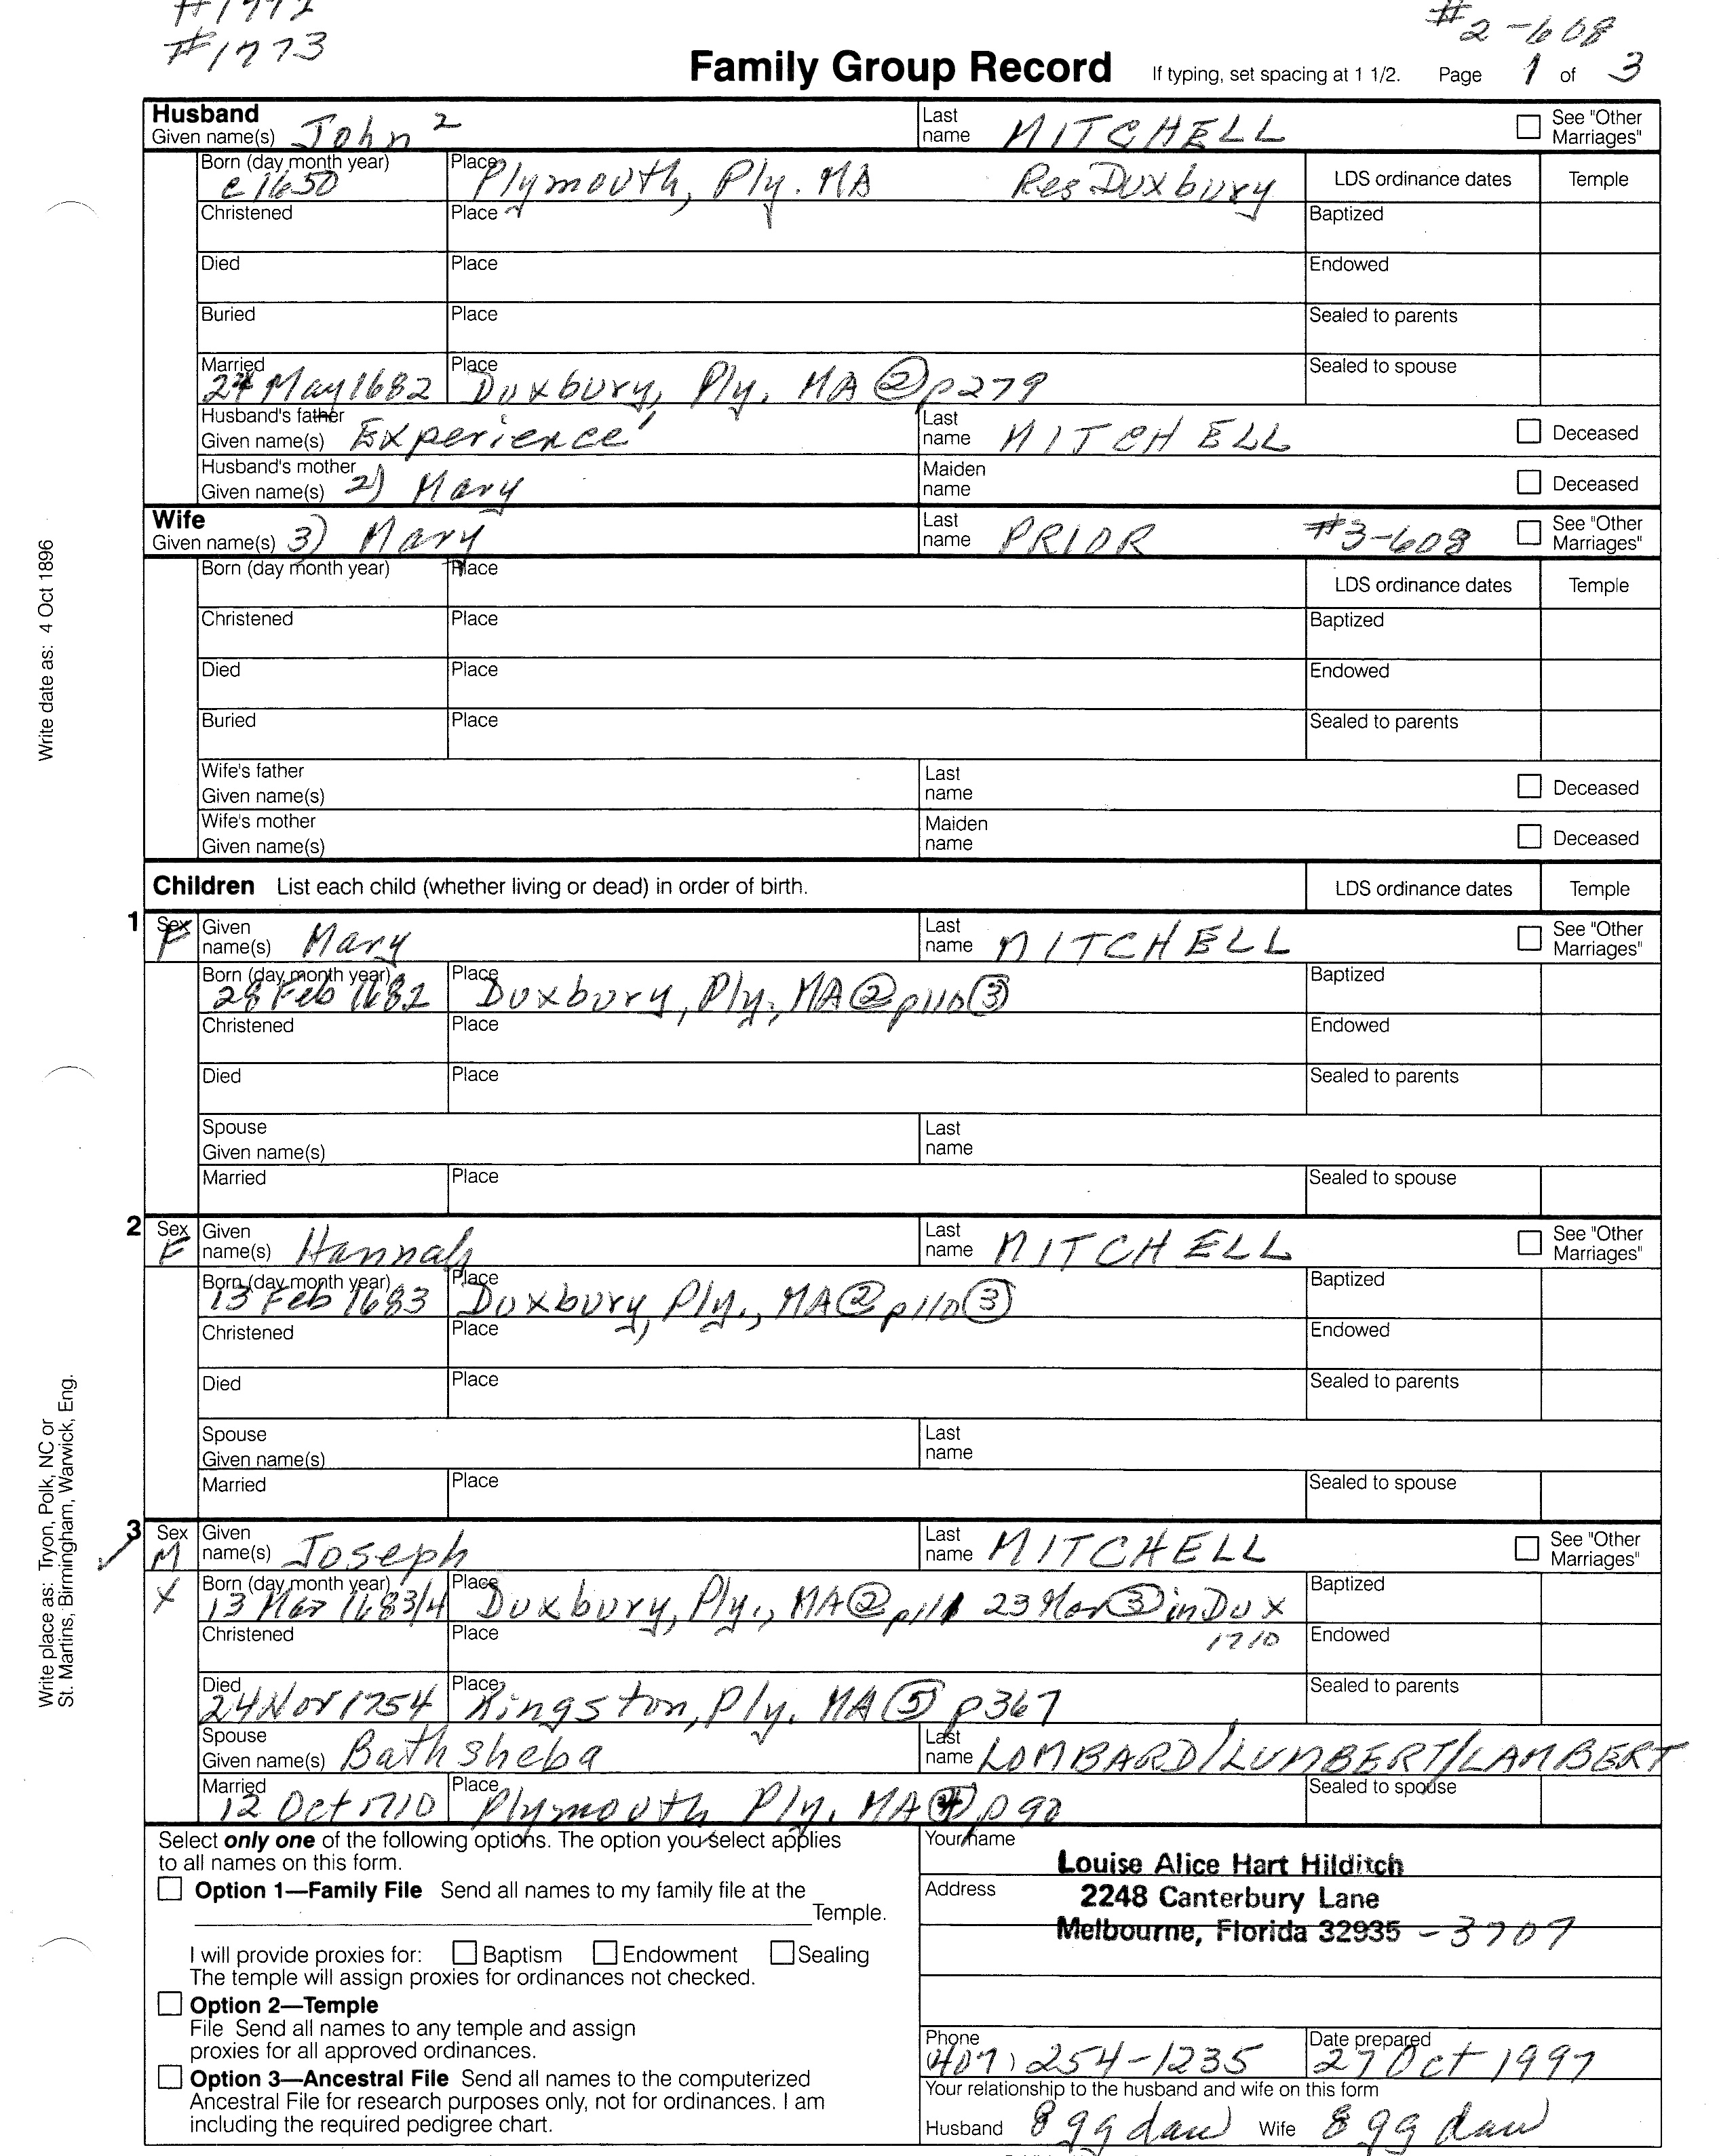 #1772
#1773
#2-608
Family Group Record If typing, set spacing at 1 1/2. Page 1 of 3
Husband
Given name(s) John 2 Last name MITCHELL See "Other Marriages"
Born (day month year) c 1650 Place Plymouth, Ply. MA Res Duxbury LDS ordinance dates Temple
Christened Place Baptized
Died Place Endowed
Buried Place Sealed to parents
Married 24 May 1682 Place Duxbury, Ply. MA ② p279 Sealed to spouse
Husband's father Given name(s) Experience 1 Last name MITCHELL Deceased
Husband's mother Given name(s) 2) Mary Maiden name Deceased
Wife
Given name(s) 3) Mary Last name PRIOR #3-608 See "Other Marriages"
Born (day month year) Place LDS ordinance dates Temple
Christened Place Baptized
Died Place Endowed
Buried Place Sealed to parents
Wife's father Given name(s) Last name Deceased
Wife's mother Given name(s) Maiden name Deceased
Children List each child (whether living or dead) in order of birth. LDS ordinance dates Temple
1 Sex F Given name(s) Mary Last name MITCHELL See "Other Marriages"
Born (day month year) 28 Feb 1682 Place Duxbury, Ply., MA ② p110 ③ Baptized
Christened Place Endowed
Died Place Sealed to parents
Spouse Given name(s) Last name
Married Place Sealed to spouse
2 Sex F Given name(s) Hannah Last name MITCHELL See "Other Marriages"
Born (day month year) 13 Feb 1683 Place Duxbury, Ply., MA ② p110 ③ Baptized
Christened Place Endowed
Died Place Sealed to parents
Spouse Given name(s) Last name
Married Place Sealed to spouse
3 Sex M Given name(s) Joseph Last name MITCHELL See "Other Marriages"
X Born (day month year) 13 Mar 1683/4 Place Duxbury, Ply., MA ② p111 23 Mar ③ in Dux Baptized
Christened Place 1710 Endowed
Died 24 Nov 1754 Place Kingston, Ply. MA ⑤ p367 Sealed to parents
Spouse Given name(s) Bathsheba Last name LOMBARD/LUMBERT/LAMBERT
Married 12 Oct 1710 Place Plymouth Ply. MA ④ p90 Sealed to spouse
Select only one of the following options. The option you select applies
to all names on this form.
Option 1—Family File Send all names to my family file at the
Temple.
I will provide proxies for: Baptism Endowment Sealing
The temple will assign proxies for ordinances not checked.
Option 2—Temple
File Send all names to any temple and assign
proxies for all approved ordinances.
Option 3—Ancestral File Send all names to the computerized
Ancestral File for research purposes only, not for ordinances. I am
including the required pedigree chart.
Your name Louise Alice Hart Hilditch
Address 2248 Canterbury Lane
Melbourne, Florida 32935 -3707
Phone 407) 254-1235 Date prepared 27 Oct 1997
Your relationship to the husband and wife on this form
Husband 8 gg dau Wife 8 gg dau
Write date as: 4 Oct 1896
Write place as: Tryon, Polk, NC or
St. Martins, Birmingham, Warwick, Eng.